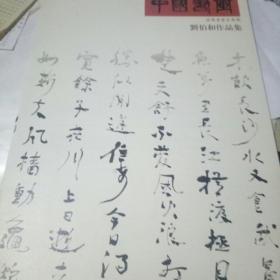 中國
劉伯和作品集
才飲長沙水又食武昌
魚萬里長江橫渡極目
楚天舒不管風吹浪打
勝似閒庭信步今日得
寬餘子在川上曰逝者
如斯夫風檣動龜蛇